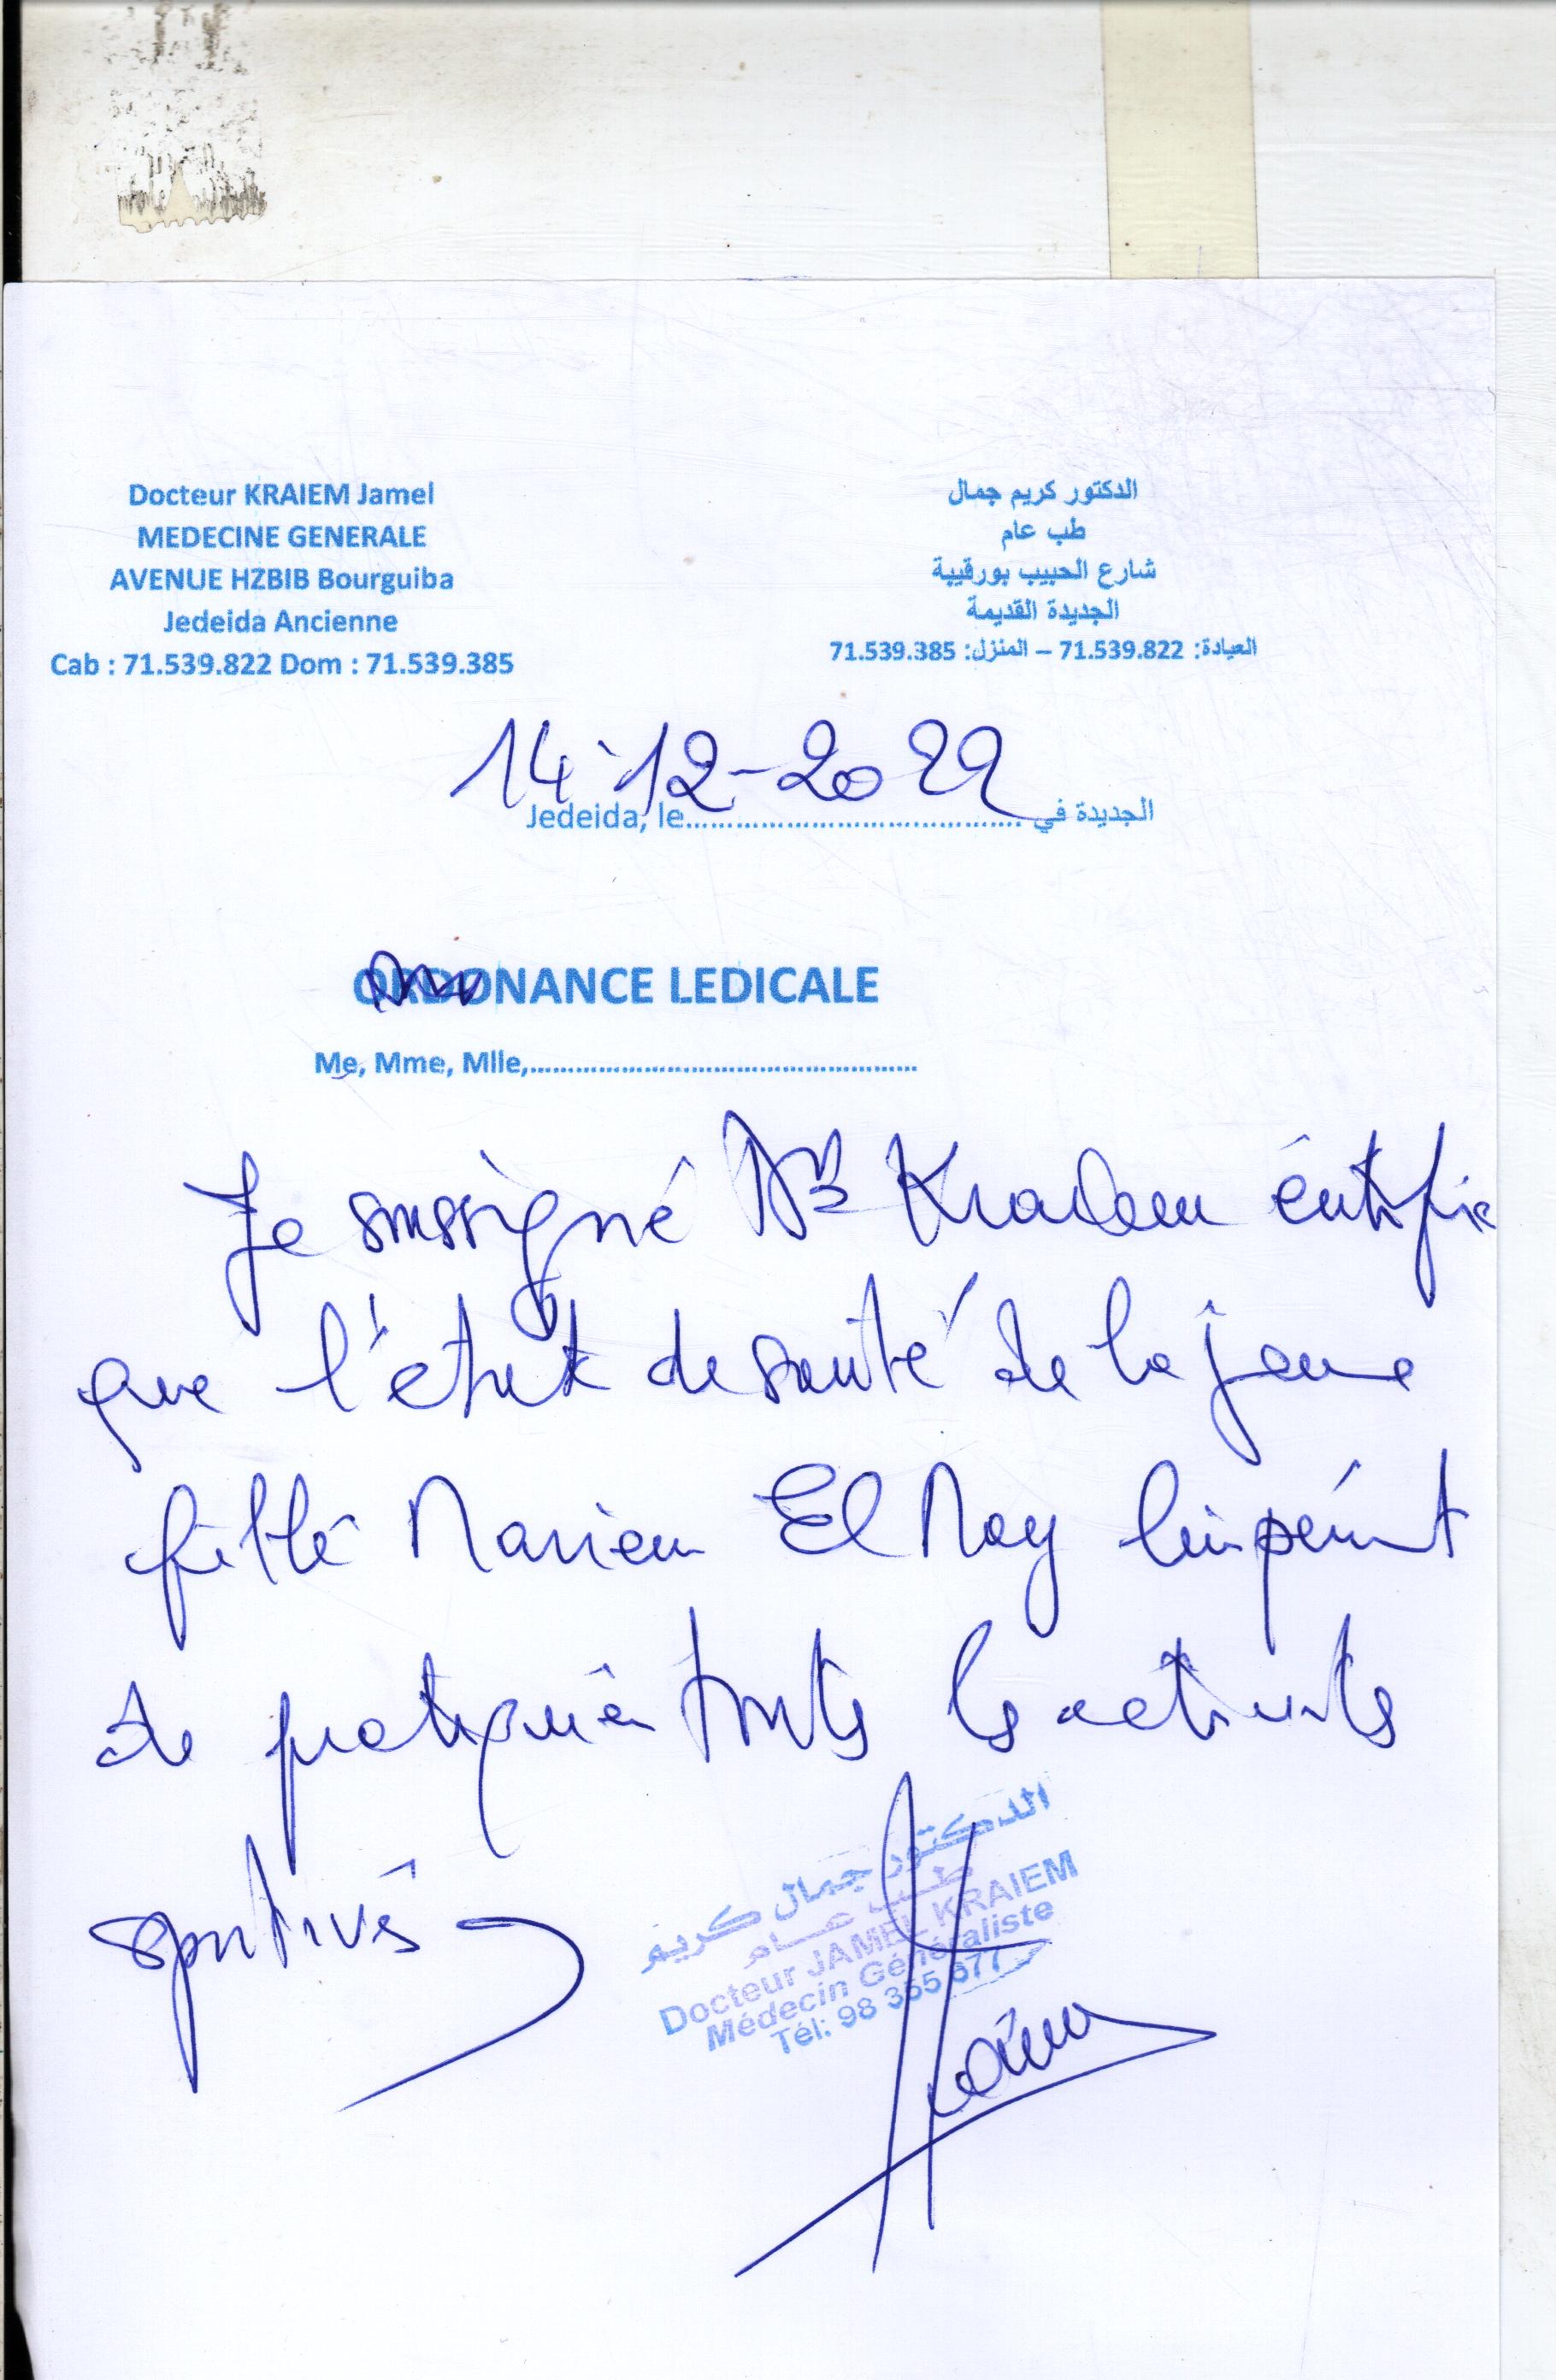 Docteur KRAIEM Jamel
MEDECINE GENERALE
AVENUE HZBIB Bourguiba
Jedeida Ancienne
Cab : 71.539.822 Dom : 71.539.385
الدكتور كريم جمال
طب عام
شارع الحبيب بورقيبة
الجديدة القديمة
العيادة: 71.539.822 – المنزل: 71.539.385
14-12-2022
Jedeida, le........................................ الجديدة في
ORDONANCE LEDICALE
Me, Mme, Mlle,..................................................
Je soussigné Dr Kraiem certifie
que l'état de santé de la jeune
fille Mariem El May lui permet
de pratiquer toutes les activités
sportives
الدكتور جمال كريم
طب عام
Docteur JAMEL KRAIEM
Médecin Généraliste
Tél: 98 355 677